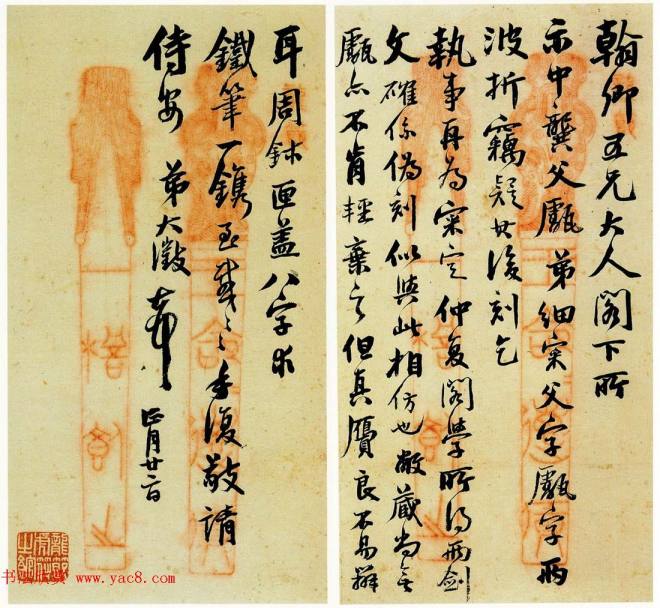 翰卿五兄大人閣下所
示中龔父甗弟細宷父字甗字兩
波折竊疑其後刻乞
執事再為宷定仲復閣學所得兩劍
文確係偽刻似與此相仿也敝藏尚無
甗亦不肯輕棄之但真贗良不易辨
耳周鉢匣蓋八字求
鐵筆一鐫至感〻手復敬請
侍安 弟大澂頓首 正月廿二日
龍節虎符之館
书法欣赏 www.yac8.com